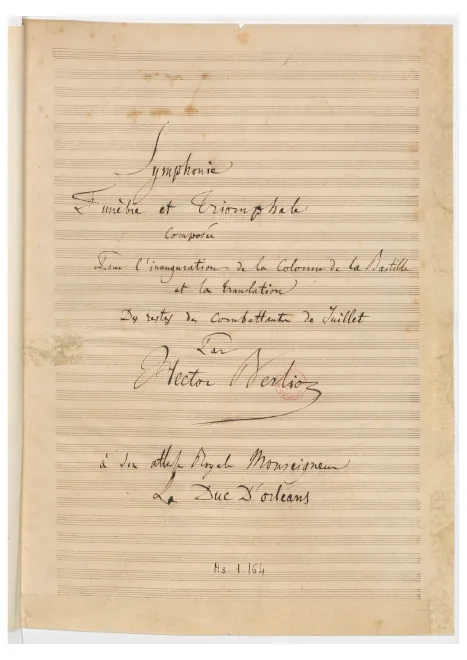 Symphonie
Funèbre et Triomphale
Composée
Pour l'inauguration de la Colonne de la Bastille
et la translation
Des restes des combattants de Juillet
Par
Hector Berlioz
à Son altesse Royale Monseigneur
Le Duc D'orléans
Ms. 1.164